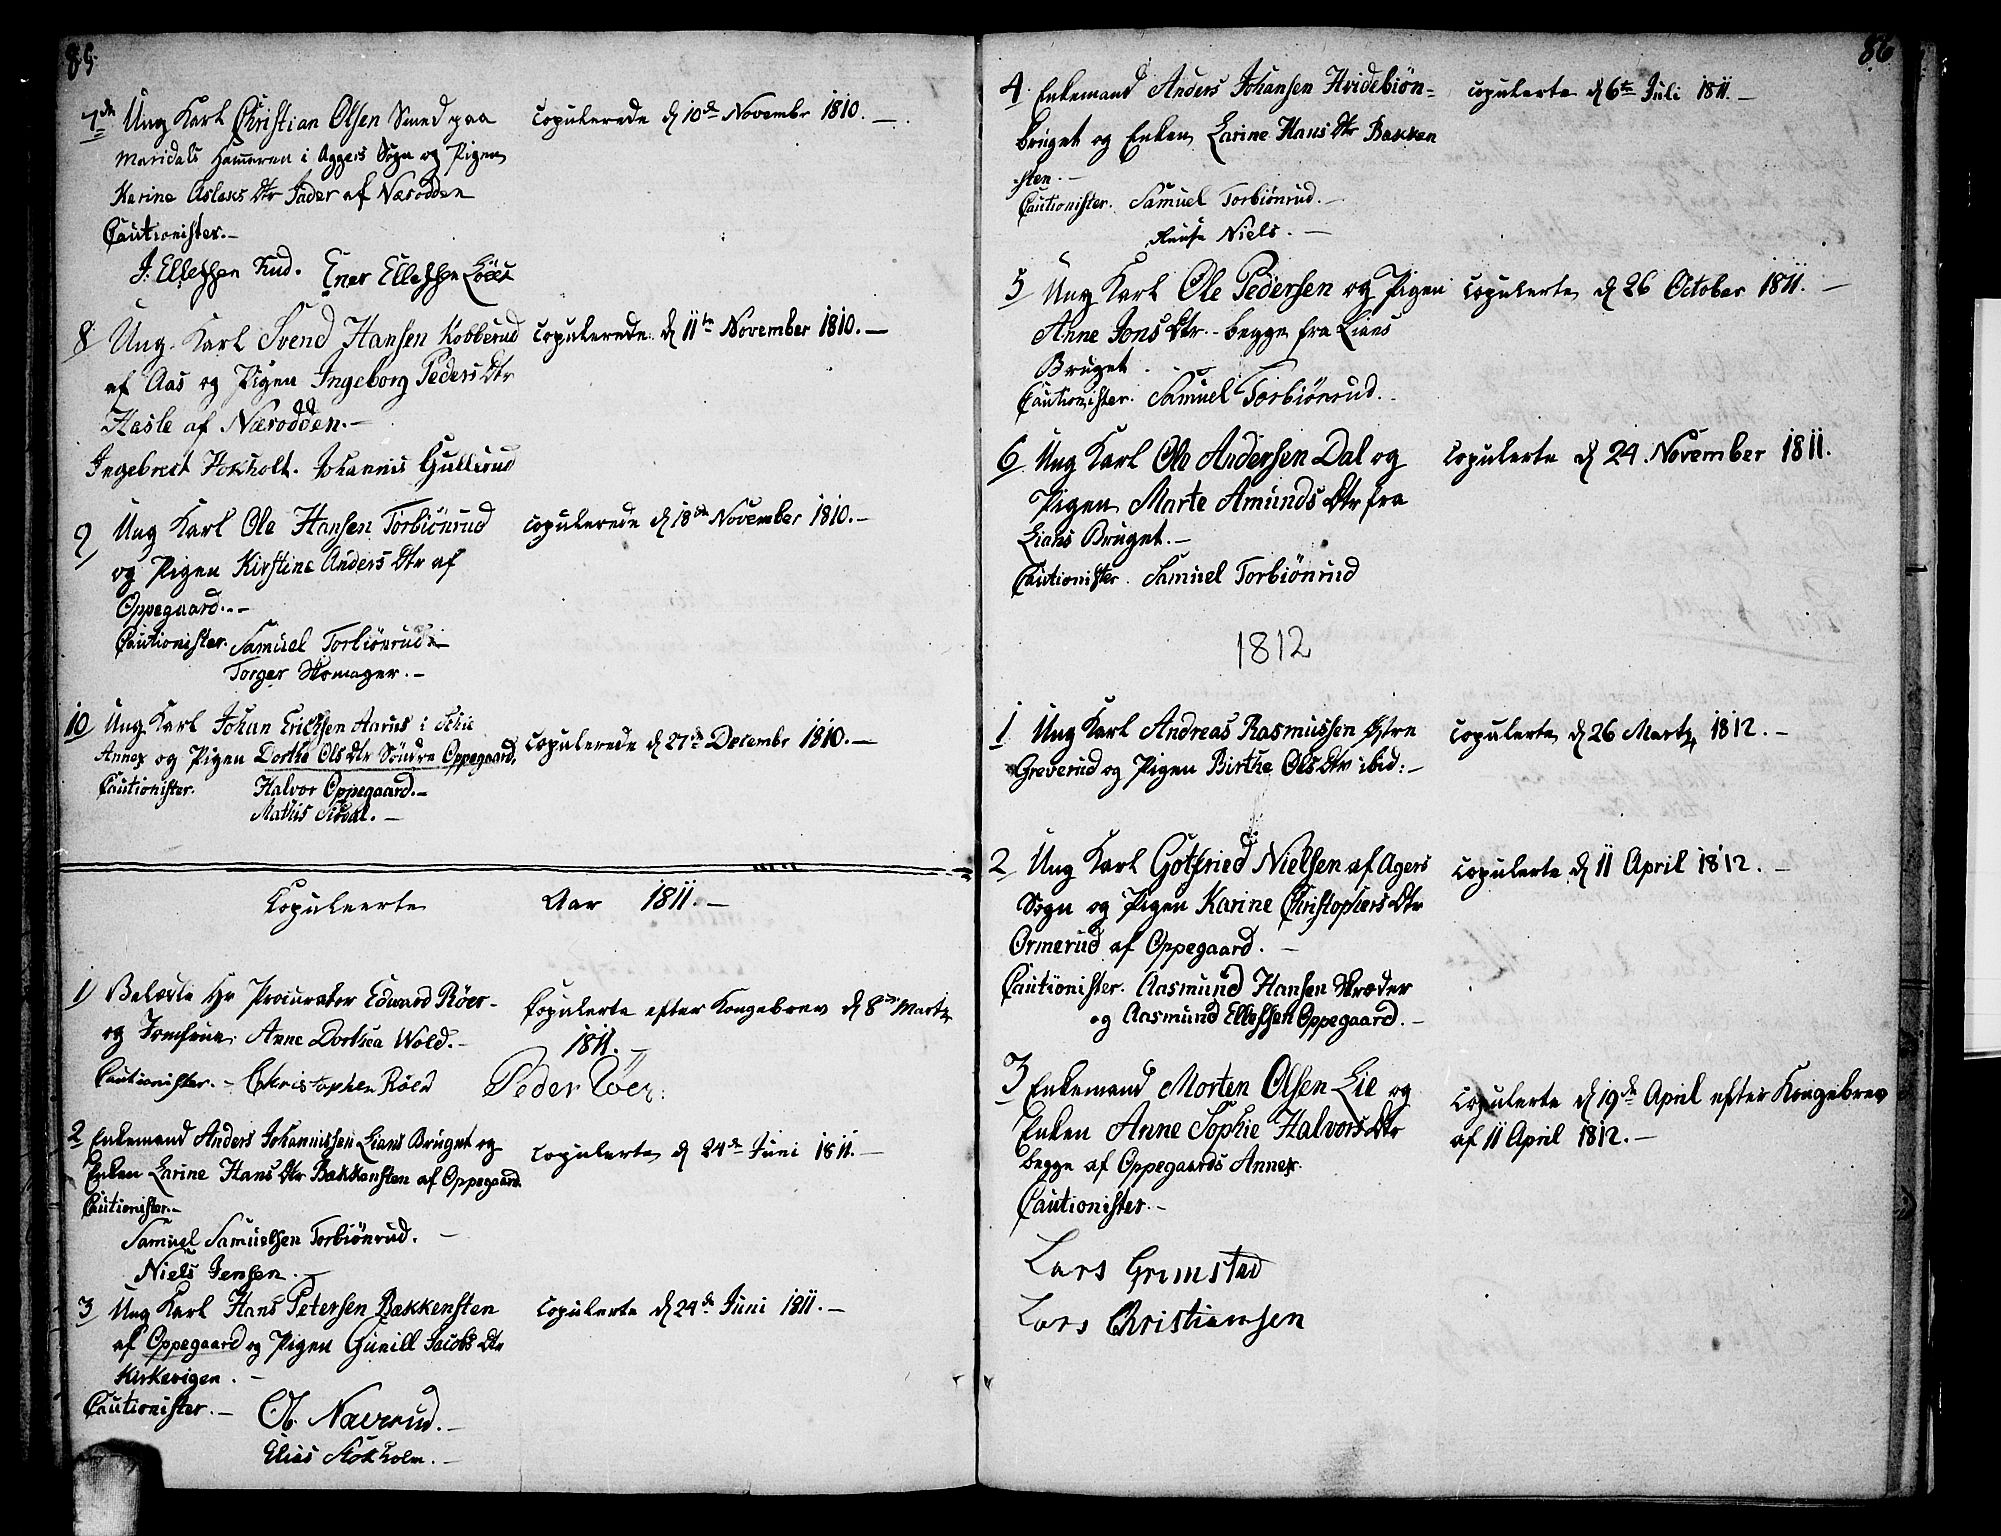 85.
7de Ung Karl Christian Olsen Smed paa
Maridals Hameren i Aggers Sogn og Pigen
Karine Aslaks Dtr Jader af Næsodden
Cautionister.-
J. Ellefsen Rud. Ener Ellefsen
Copulerede d 10de Novembr 1810.-
8 Ung Karl Svend Hansen Kobberud
af Aas og Pigen Ingeborg Peders Dtr
Hasle af Næsodden.-
Ingebret Hokholt. Johannis Gullerud
Copulerede d 11te November 1810.-
9 Ung Karl Ole Hansen Torbiönrud
og Pigen Kirstine Anders Dtr af
Oppegaard.-
Cautionister. Samuel Torbiönrud
Torger Skomager.-
Copulerede d 18de November 1810.-
10 Ung Karl Johan Ericksen Aarus i Skie
Annex og Pigen Dorthe Ols Dtr Söndre Oppegaard.
Cautionister. Halvor Oppegaard.-
Mathis
Copulerede d 27de Decembr 1810.-
Copuleerte Aar 1811.-
1 Belædle Hr Procurator Edward Röer-
og Jomfrue Anne Dorthea Wold.-
Cautionister.- Christopher Röer Peder Röer.
Copulerte efter Kongebrev d 8de Marty
1811.-
2 Enkemand Anders Johannissen Lians Bruget og
Enken Larine Hans Dtr Bækkensten af Oppegaard.
Cautionister.-
Samuel Samuelsen Torbiönrud.-
Niels Jensen.-
Copulerte d 24de Juni 1811.-
3 Ung Karl Hans Petersen Bækkensten
af Oppegaard og Pigen Gunill Jacobs Dtr
Kirkevigen.-
Cautionister.- Ob. Næverud.-
Elias Stokholm.-
Copulerte d 24de Juni 1811.-
86
4. Enkemand Anders Johansen Hvidebiön-
bruget og Enken Larine Hans Dtr Bækken
sten.-
Cautionister. Samuel Torbiönrud.-
Niels.-
Copulerte d 6te Juli 1811.-
5 Ung Karl Ole Pedersen og Pigen
Anne Jons Dtr.- begge fra Lians
Bruget.
Cautionister. Samuel Torbiönrud.
Copulerte d 26 October 1811.-
6 Ung Karl Ole Andersen Dal og
Pigen Marte Amunds Dtr fra
Lians Bruget.-
Cautionister. Samuel Torbiönrud
Copulerte d 24. November 1811.
1812
1 Ung Karl Andreas Rasmussen Østre
Greverud og Pigen Birthe Ols Dtr ibid:-
Copulerte d 26 Marty 1812.-
2 Ung Karl Gotfried Nielsen af Agers
Sogn og Pigen Karine Christophers Dtr
Ormerud af Oppegaard.-
Cautionister. Aasmund Hansen Skræder
og Aasmund Ellefsen Oppegaard.-
Copulerte d 11 April 1812.-
3 Enkemand Morten Olsen Lie og
Enken Anne Sophie Halvors Dtr
begge af Oppegaards Annex.
Cautionister.-
Lars Grimstad
Lars Christiansen
Copulerte d 19de April efter Kongebrev
af 11 April 1812.-